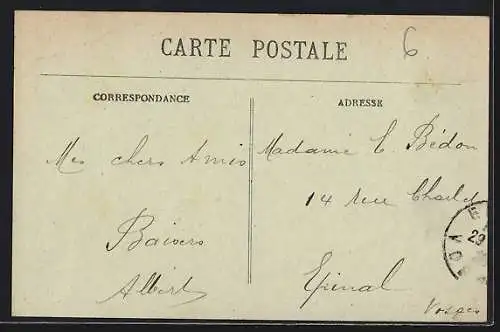 CARTE POSTALE
6
CORRESPONDANCE
ADRESSE
Mes chers Amis
Baisers
Albert
Madame E. Bédon
14 rue Charlet
Epinal
Vosges
29